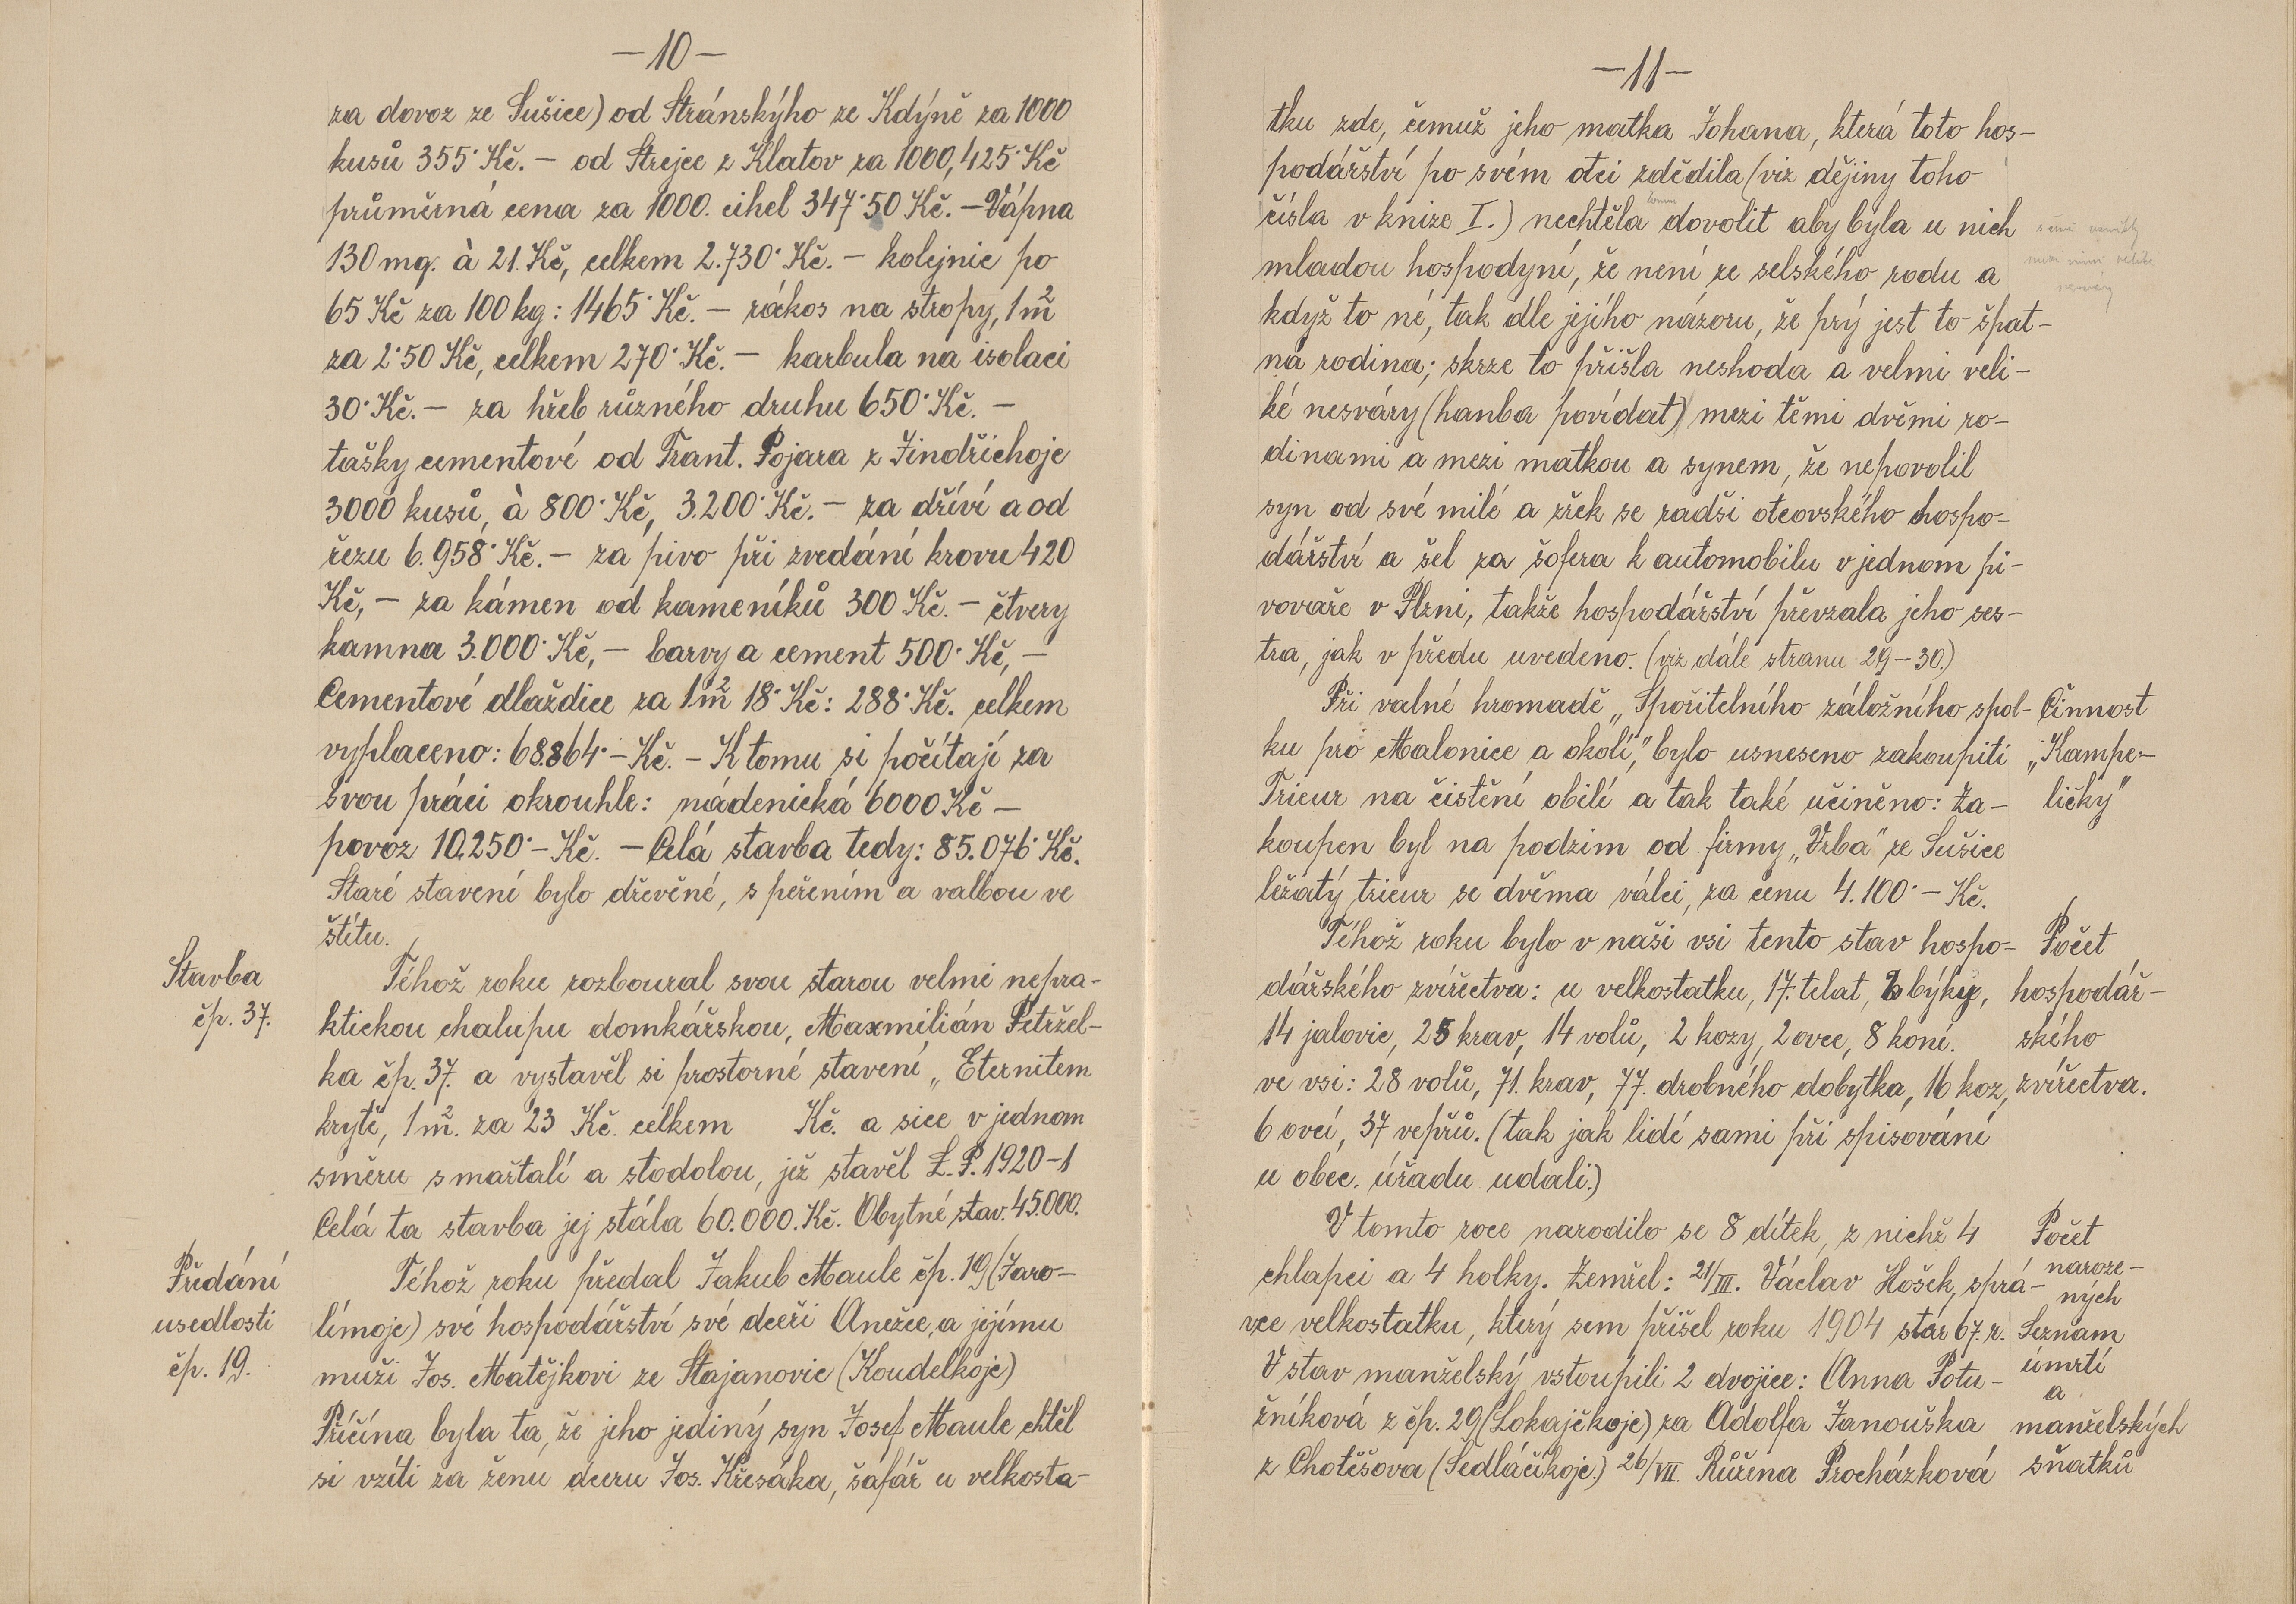 —10—
za dovoz ze Sušice) od Stránskýho ze Kdýně za 1000
kusů 355· Kč. — od Strejce z Klatov za 1000, 425· Kč
průměrná cena za 1000. cihel 347·50 Kč. — Vápna
130 mq. à 21. Kč, celkem 2.730· Kč. — kolejnic po
65 Kč za 100 kg: 1465· Kč. — rákos na stropy, 1 m²
za 2·50 Kč, celkem 270· Kč. — karbula na isolaci
30· Kč. — za hřeb různého druhu 650· Kč. —
tašky cementové od Frant. Pojara z Jindřichoje
3000 kusů, à 800· Kč, 3.200· Kč. — za dříví a od
řezu 6.958· Kč. — za pivo při zvedání krovu 420
Kč, — za kámen od kameníků 300 Kč. — čtvery
kamna 3.000· Kč, — barvy a cement 500· Kč, —
Cementové dlaždice za 1 m² 18· Kč: 288· Kč. celkem
vyplaceno: 68.864· — Kč. — K tomu si počítají za
svou práci okrouhle: nádenická 6000 Kč —
povoz 10.250· — Kč. — Celá stavba tedy: 85.076· Kč.
Staré stavení bylo dřevěné, s peřením a valbou ve
štítu.
Stavba
čp. 37.
Téhož roku rozboural svou starou velmi nepra-
ktickou chalupu domkářskou, Maxmilián Petržel-
ka čp. 37. a vystavěl si prostorné stavení „Eternitem
kryté, 1 m². za 23 Kč. celkem Kč. a sice v jednom
směru s maštalí a stodolou, jež stavěl L. P. 1920-1
Celá ta stavba jej stála 60.000. Kč. Obytné stav. 45.000.
Předání
usedlosti
čp. 19.
Téhož roku předal Jakub Maule čp. 19 (Jaro-
límoje) své hospodářství své dceři Anežce, a jejímu
muži Jos. Matějkovi ze Stajanovic (Koudelkoje)
Příčina byla ta, že jeho jediný syn Josef Maule chtěl
si vzíti za ženu dceru Jos. Křesáka, šafář u velkosta-
—11—
tku zde, čemuž jeho matka Johana, která toto hos-
podářství po svém otci zdědila (viz dějiny toho
čísla v knize I.) nechtěla tomu dovolit aby byla u nich
mladou hospodyní, že není ze selského rodu a
když to né, tak dle jejího názoru, že prý jest to špat-
ná rodina; skrze to přišla neshoda a velmi veli-
ké nesváry (hanba povídat) mezi těmi dvěmi ro-
dinami a mezi matkou a synem, že nepovolil
syn od své milé a zřek se radši otcovského hospo-
dářství a šel za šofera k automobilu v jednom pi-
vovaře v Plzni, takže hospodářství převzala jeho ses-
tra, jak v předu uvedeno. (viz dále stranu 29-30.)
Při valné hromadě „Spořitelního záložního spol-
ku pro Malonice a okolí," bylo usneseno zakoupiti
Trieur na čistění obilí a tak také učiněno: Za-
koupen byl na podzim od firmy „Vrba" ze Sušice
ležatý trieur se dvěma válci, za cenu 4.100· — Kč.
Činnost
„Kampe-
ličky"
Téhož roku bylo v naši vsi tento stav hospo-
dářského zvířectva: u velkostatku, 17. telat, 2 býky,
14 jalovic, 25 krav, 14 volů, 2 kozy, 2 ovce, 8 koní.
ve vsi: 28 volů, 71. krav, 77. drobného dobytka, 16 koz,
6 ovcí, 37 vepřů. (tak jak lidé sami při spisování
u obec. úřadu udali.)
Počet
hospodář-
ského
zvířectva.
V tomto roce narodilo se 8 dítek, z nichž 4
chlapci a 4 holky. Zemřel: 21/III. Václav Hošek, sprá-
vce velkostatku, který sem přišel roku 1904 stár 67. r.
V stav manželský vstoupili 2 dvojice: Anna Potu-
žníková z čp. 29 (Lokajčkoje) za Adolfa Janouška
z Chotěšova (Sedláčkoje.) 26/VII. Růžena Procházková
Počet
naroze-
ných
Seznam
úmrtí
a
manželských
sňatků